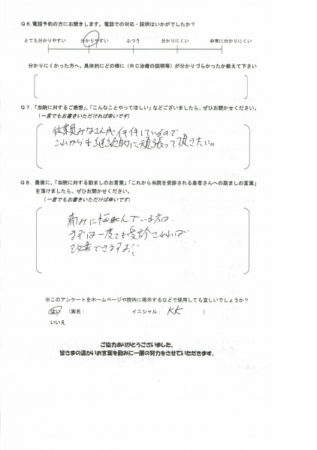 Q6.電話予約の方にお聞きします。電話での対応・説明はいかがでしたか?
とても分かりやすい 分かりやすい ふつう 分かりにくい 非常に分かりにくい
分かりにくかった方へ、具体的にどの様に(RC治療の説明等)が分かりづらかったか教えて下さい
Q7.「当院に対するご感想」、「こんなことやってほしい」などございましたら、ぜひお聞かせください。
(一言でもお書きいただければ幸いです)
従業員みなさん
これからも継続的に頑張って頂きたい。
Q8.最後に、「当院に対する励ましのお言葉」「これから当院を受診される患者さんへの励ましの言葉」
を頂けましたら、ぜひお聞かせください。
(一言でもお書きいただければ幸いです)
痛みに悩んでいる方は、
まずは一度でも受診されれば
改善できますよ!
※このアンケートをホームページや院内に掲示するなどで使用しても宜しいでしょうか?
はい (実名: イニシャル: KK )
いいえ
ご協力ありがとうございました。
皆さまの温かいお言葉を励みに一層の努力をさせていただきます。